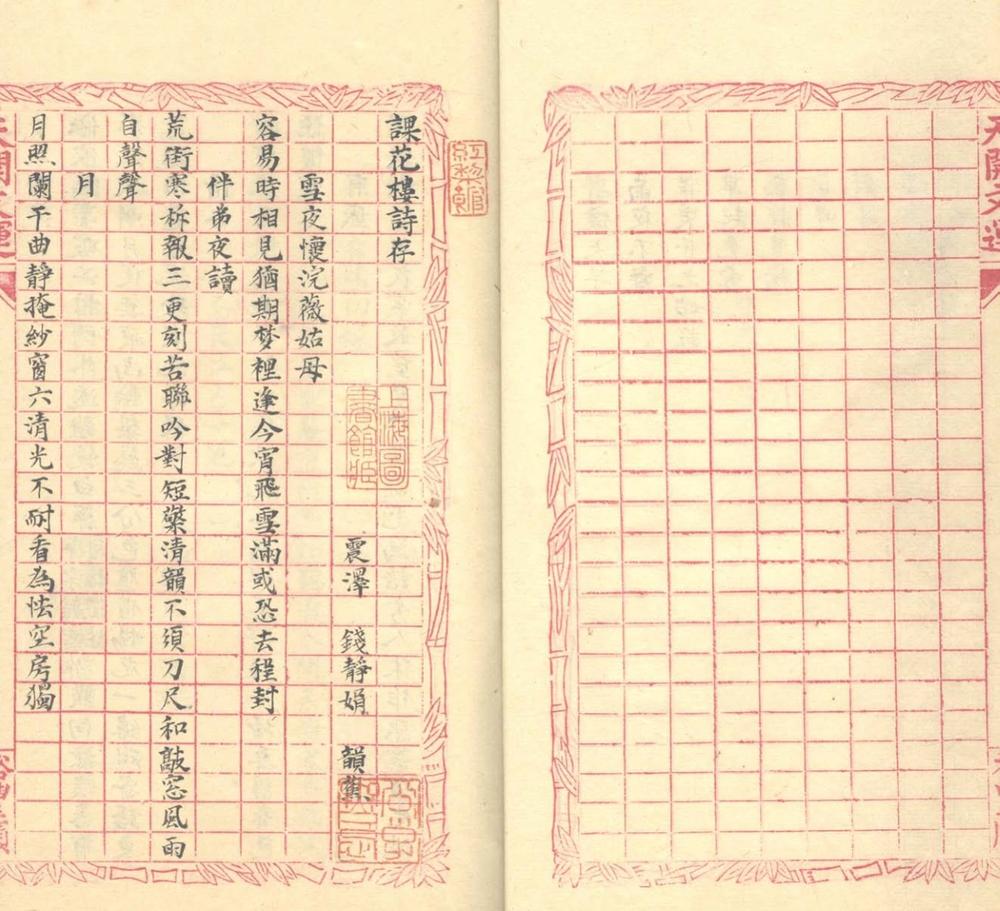 天開文運
課花樓詩存
震澤 錢靜娟 韻蕉
雪夜懷浣薇姑母
容易時相見猶期梦裡逢今宵飛雪滿或恐去程封
伴弟夜讀
荒街寒柝報三更刻苦聯吟對短檠清韻不須刀尺和敲窓風雨
自聲聲
月
月照闌干曲靜掩紗窗六清光不耐看為怯空房獨
上海圖
書館藏